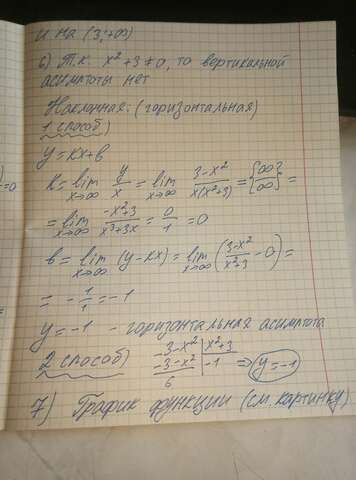 и на (3;+∞)
6) Т.к. x²+3≠0, то вертикальной
асимптоты нет
Наклонная: (горизонтальная)
1 способ)
y=kx+b
k=lim x→∞ y/x = lim x→∞ (3-x²)/(x(x²+3)) = {∞/∞} =
= lim x→∞ (-x²+3)/(x³+3x) = 0/1 = 0
b = lim x→∞ (y-kx) = lim x→∞ ((3-x²)/(x²+3) - 0) =
= -1/1 = -1
y=-1 - горизонтальная асимптота
2 способ) 3-x² | x²+3
-3-x² | -1 ⇒ y=-1
6
7) График функции (см. картинку)